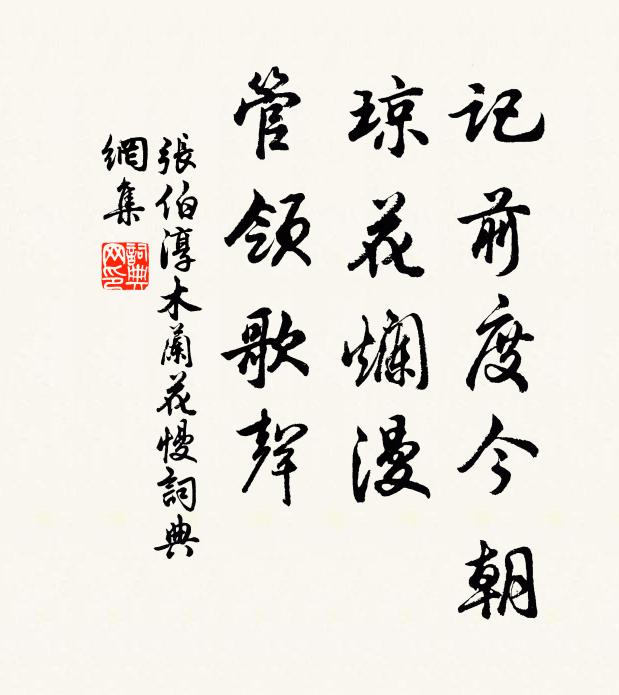 记前度今朝
琼花爛漫
管领歌聲
張伯淳木蘭花慢詞典
網集
詞典
网印